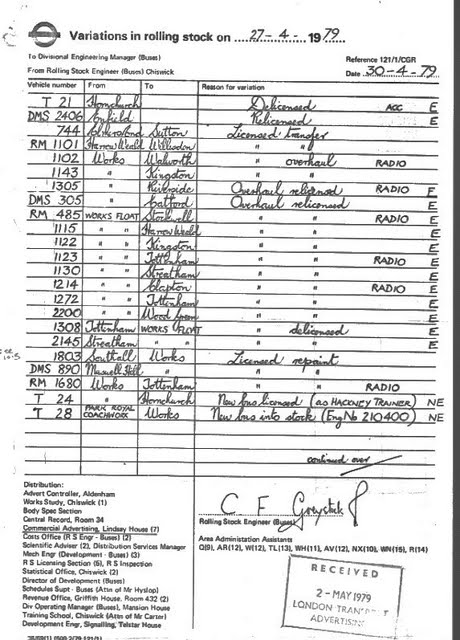 Variations in rolling stock on 27-4-1979
To Divisional Engineering Manager (Buses)
Reference 121/1/CGR
From Rolling Stock Engineer (Buses) Chiswick
Date 30-4-79
Vehicle number From To Reason for variation
T 21 Hornchurch Delicensed ACC E
DMS 2406 Enfield Relicensed E
744 Sutton Licensed transfer
RM 1101 Harrow Weald Willesden " "
1102 Works Walworth " overhaul RADIO
1143 " Kingston " "
1305 " Riverside Overhaul relicensed RADIO E
DMS 305 " Catford Overhaul relicensed E
RM 485 WORKS FLOAT Stockwell " " RADIO E
1115 " " Harrow Weald " " E
1122 " " Kingston " " E
1123 " " Tottenham " " RADIO E
1130 " " Streatham " " E
1214 " " Clapton " " RADIO E
1272 " " Tottenham " " E
2200 " " Wood Green " " E
1308 Tottenham WORKS FLOAT " delicensed E
2145 Streatham " " " " E
1803 Southall Works Licensed repaint
DMS 890 Muswell Hill " " "
RM 1680 Works Tottenham " " RADIO
T 24 " Hornchurch New bus licensed (as HACKNEY TRAINER) NE
T 28 PARK ROYAL COACHWORK Works New bus into stock (Eng No 210400) NE
continued over
Distribution:
Advert Controller, Aldenham
Works Study, Chiswick (1)
Body Spec Section
Central Record, Room 34
Commercial Advertising, Lindsay House (7)
Costs Office (R S Engr - Buses) (2)
Scientific Adviser (2), Distribution Services Manager
Mech Engr (Development - Buses) (3)
R S Licensing Section (5), R S Inspection
Statistical Office, Chiswick (2)
Director of Development (Buses)
Schedules Supt - Buses (Attn of Mr Hyslop)
Revenue Office, Griffith House, Room 432 (2)
Div Operating Manager (Buses), Mansion House
Training School, Chiswick (Attn of Mr Carter)
Development Engr, Signalling, Telstar House
C F
Rolling Stock Engineer (Buses)
Area Administation Assistants
Q(9), AR(12), W(12), TL(13), WH(11), AV(12), NX(10), WN(15), R(14)
RECEIVED
2 - MAY 1979
LONDON TRANSPORT
ADVERTISING